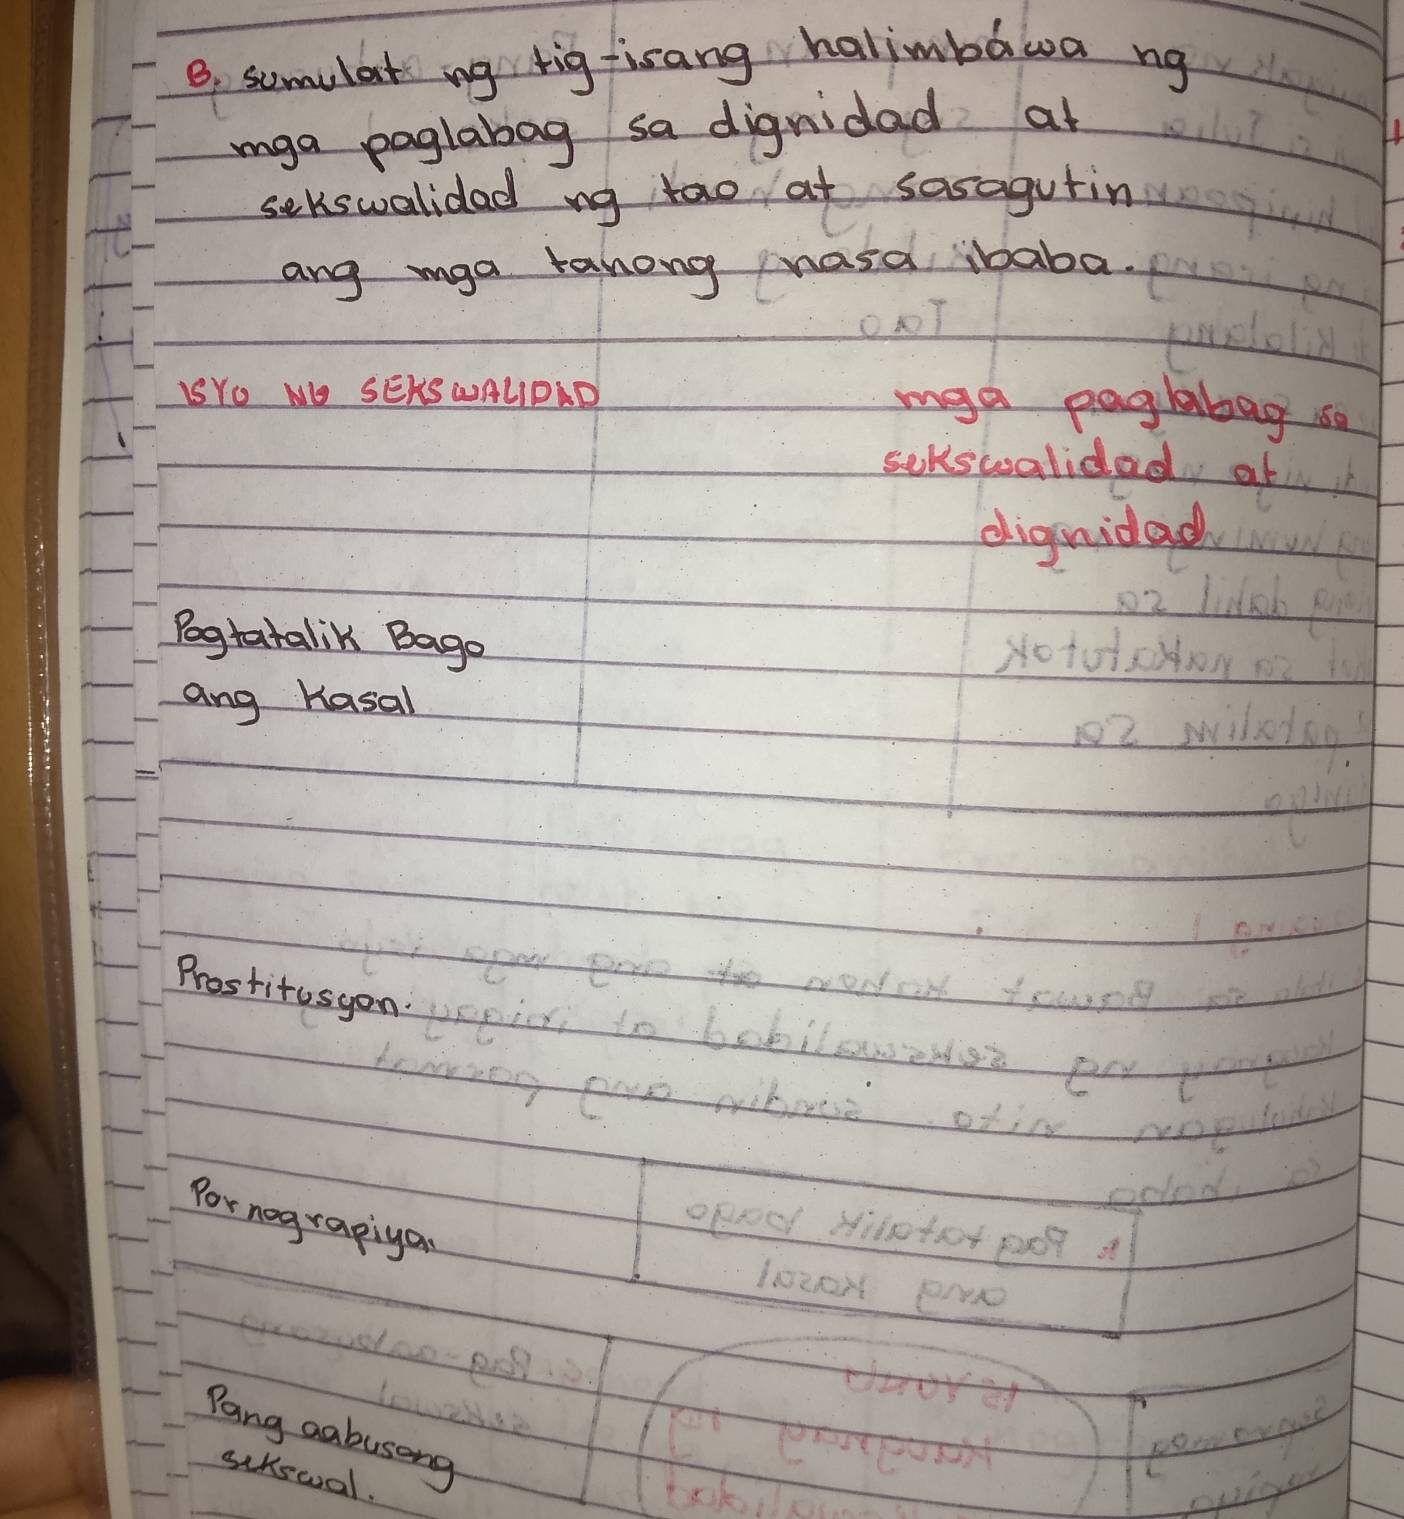 B. sumulat ng tig-isang halimbáwa ng
mga paglabag sa dignidad at
sekswalidad ng tao at sasagutin
ang mga tanong nasa ibaba.
ISYO NG SEKSWALIDAD
mga paglabag sa
sekswalidad at
dignidad
Pagtatalik Bago
ang Kasal
Prostitusyon.
Pornograpiya.
Pang aabusong
sekswal.